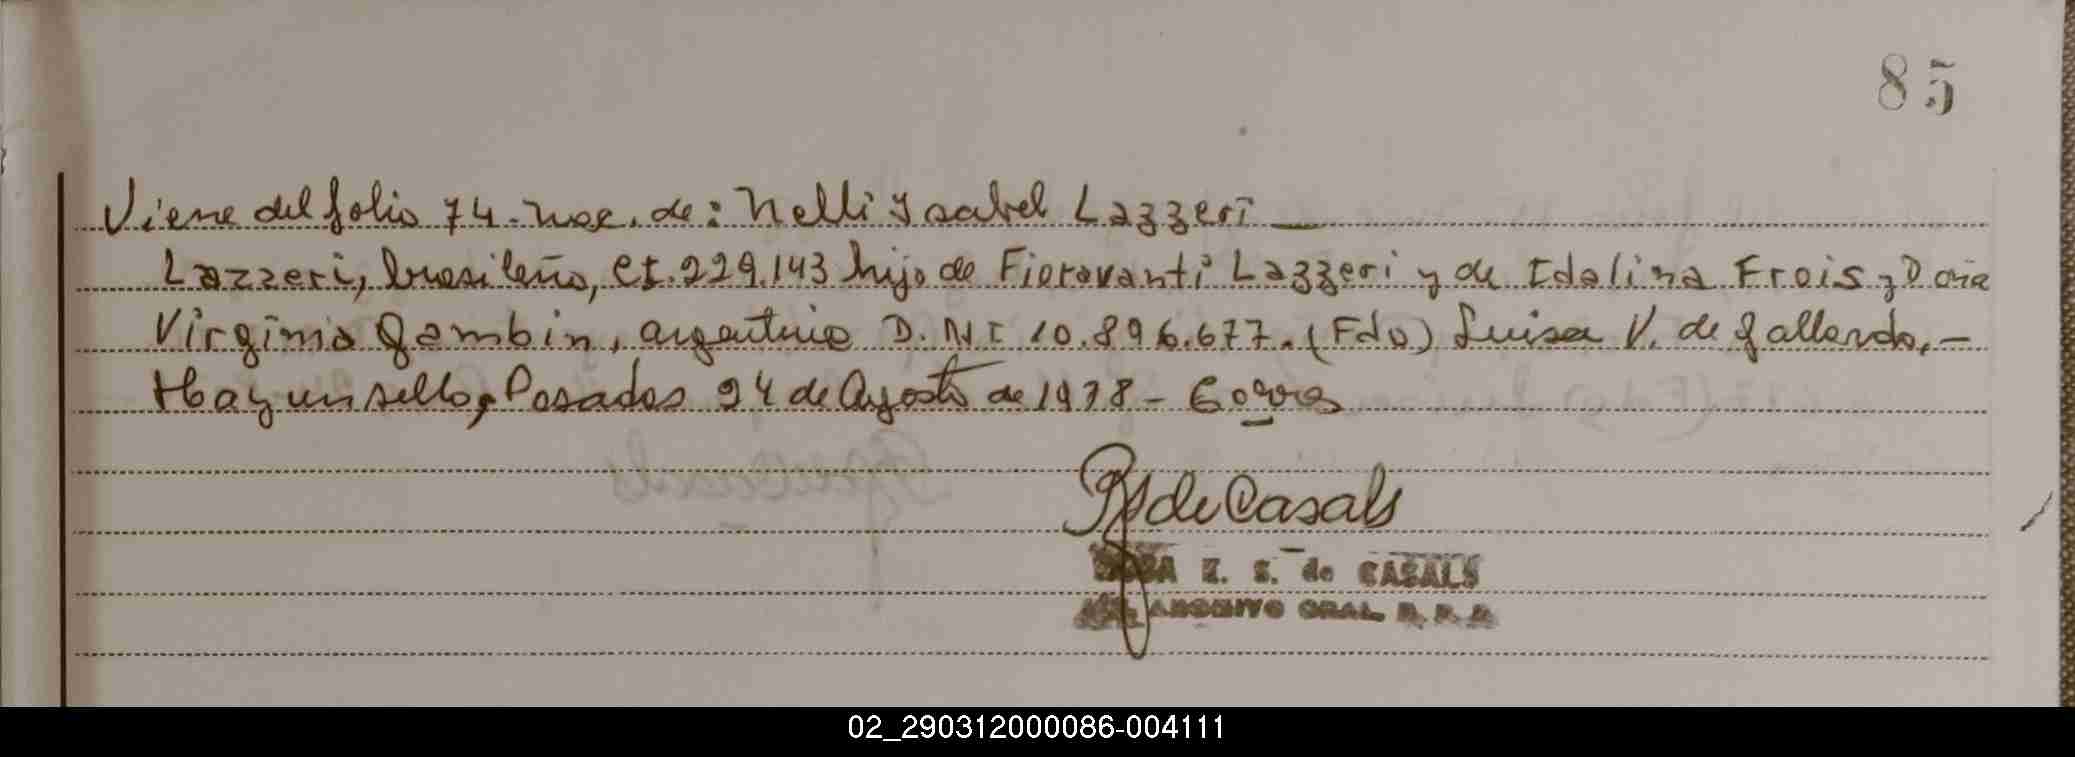 85
Viene del folio 74. Nac. de: Nelli Ysabel Lazzeri
Lazzeri, brasileño, CI. 229.143 hijo de Fioravanti Lazzeri y de Idalina Frois y Doña
Virginia Gambin, argentina D.N.I 10.896.677. (Fdo) Luisa V. de Gallardo. -
Hay un sello, Posadas 24 de Agosto de 1978 -
RS de Casals
ROSA E. S. de CASALS
ARCHIVO GRAL. R. P. P.
02_290312000086-004111